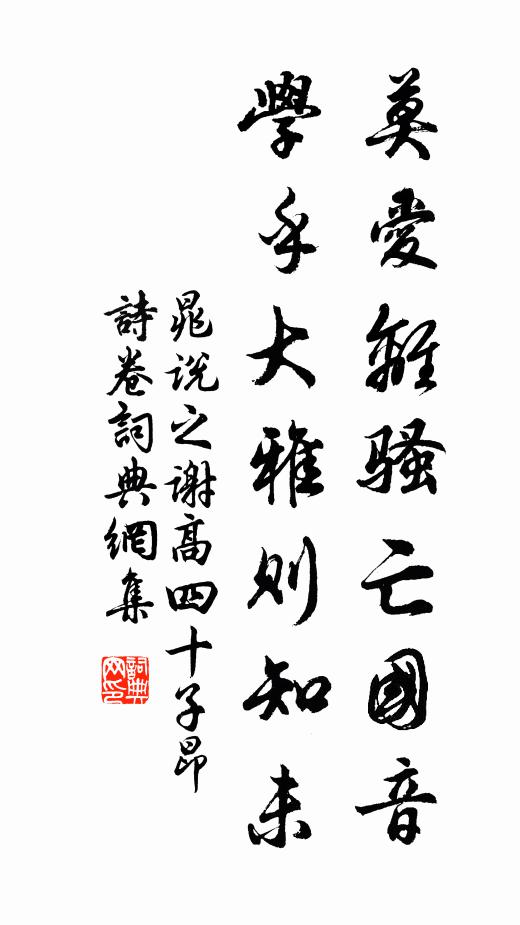 莫愛離騷亡國音
學乎大雅則知未
晁說之謝高四十子昂
詩卷詞典網集
詞典網印